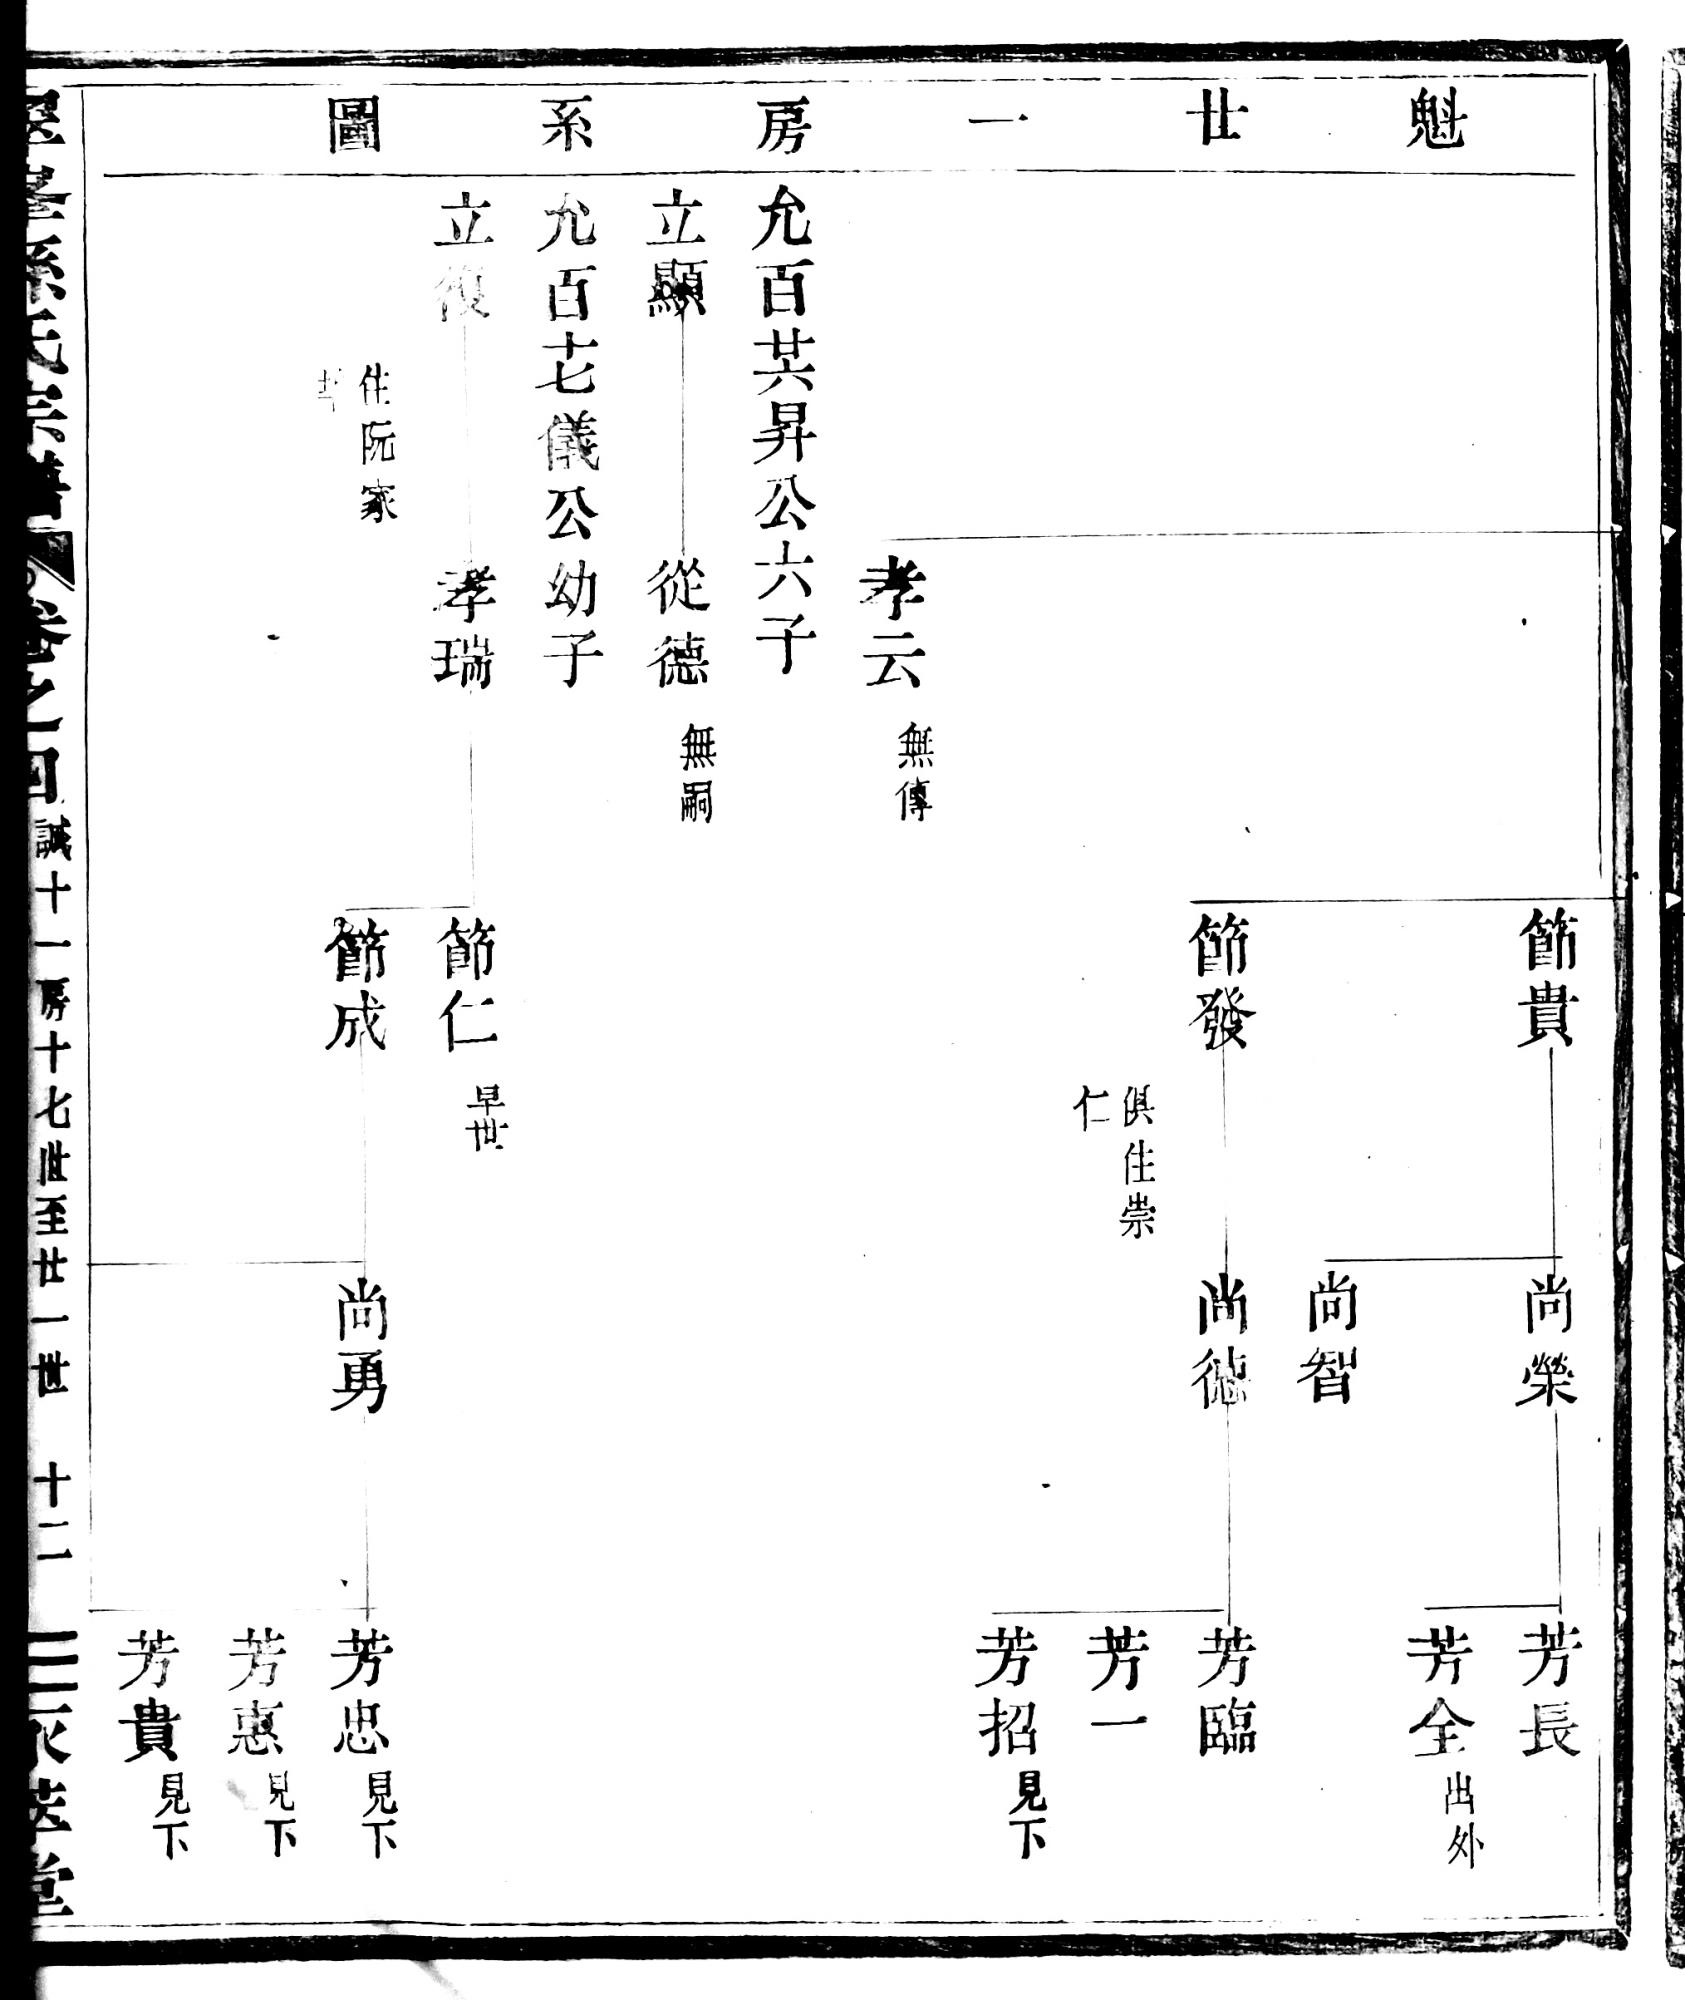 魁廿一房系圖
節貴
尚榮
芳長
芳全 出外
尚智
節發
俱住崇
仁
尚德
芳臨
芳一
芳招 見下
孝云 無傳
允百廿六昇公六子
立顯
從德 無嗣
允百十七儀公幼子
立復
住阮家
孝瑞
節仁 早世
節成
尚勇
芳忠 見下
芳惠 見下
芳貴 見下
孫氏宗譜 卷之四 誠十一房十七世至廿一世 十二 堂